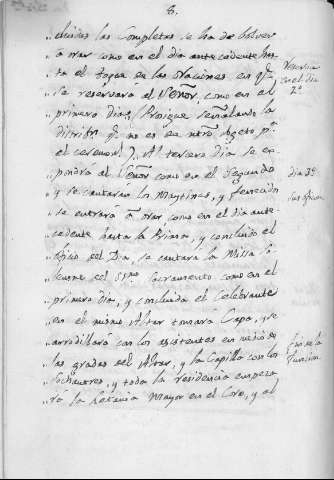 8.
„cluidas las Completas se ha de bolver
„a orar como en el dia antecedente has-
„ta el toque en las oraciones en qe.
„se reservará el Señor, como en el
„primero dia. (Prosigue señalando la
distribn. qe. no es de ntro. objeto pa.
el ceremonl.). Al tercero dia se ex-
„pondrá el Señor como en el Segundo
„y se cantarán los Maytines, y
„se entrará a orar como en el dia ante-
„cedente hasta la Prima, y concluido el
„oficio del Dia, se cantara la Missa so-
„lemne del SSmo. Sacramento como en el
„primero dia, y concluida el Celebrante
„en el mismo Altar tomará Capa, y se
„arrodillará con los asistentes en medio de
„las gradas del Altar, y la Capilla con los
„Sochantres, y toda la residencia empeza
„rá la Letania Mayor en el Coro, y al
Reserva
en el dia
2º
dia 3º
sus oficios
funcion